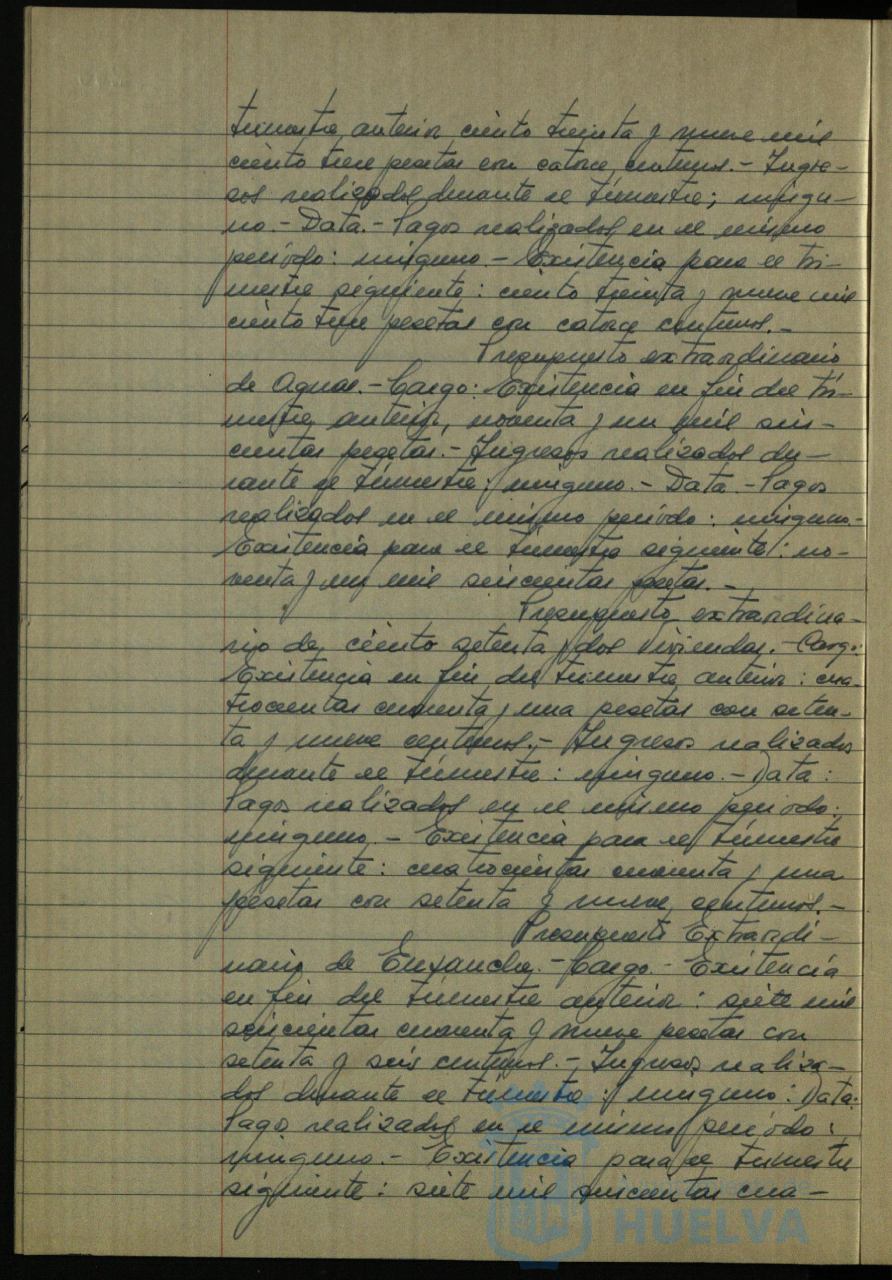 trimestre anterior ciento treinta y nueve mil
ciento trece pesetas con catorce centimos.- Ingre-
sos realizados durante el trimestre; ningu-
no.- Data.- Pagos realizados en el mismo
período: ninguno.- Existencia para el tri-
mestre siguiente: ciento treinta y nueve mil
ciento trece pesetas con catorce centimos.-
Presupuesto extraordinario
de Aguas.- Cargo: Existencia en fin del tri-
mestre anterior, noventa y un mil seis-
cientas pesetas.- Ingresos realizados du-
rante el trimestre: ninguno.- Data.- Pagos
realizados en el mismo período: ninguno.-
Existencia para el trimestre siguiente: no-
venta y un mil seiscientas pesetas.-
Presupuesto extraordina-
rio de ciento setenta y dos viviendas.- Cargo:
Existencia en fin del trimestre anterior: cua-
trocientas cuarenta y una pesetas con seten-
ta y nueve centimos.- Ingresos realizados
durante el trimestre: ninguno.- Data:
Pagos realizados en el mismo período:
ninguno.- Existencia para el trimestre
siguiente: cuatrocientas cuarenta y una
pesetas con setenta y nueve centimos.-
Presupuesto Extraordi-
nario de Ensanche.- Cargo.- Existencia
en fin del trimestre anterior: siete mil
seiscientas cuarenta y nueve pesetas con
setenta y seis centimos.- Ingresos realiza-
dos durante el trimestre: ninguno: Data:
Pagos realizados en el mismo período:
ninguno.- Existencia para el trimestre
siguiente: siete mil seiscientas cua-
HUELVA